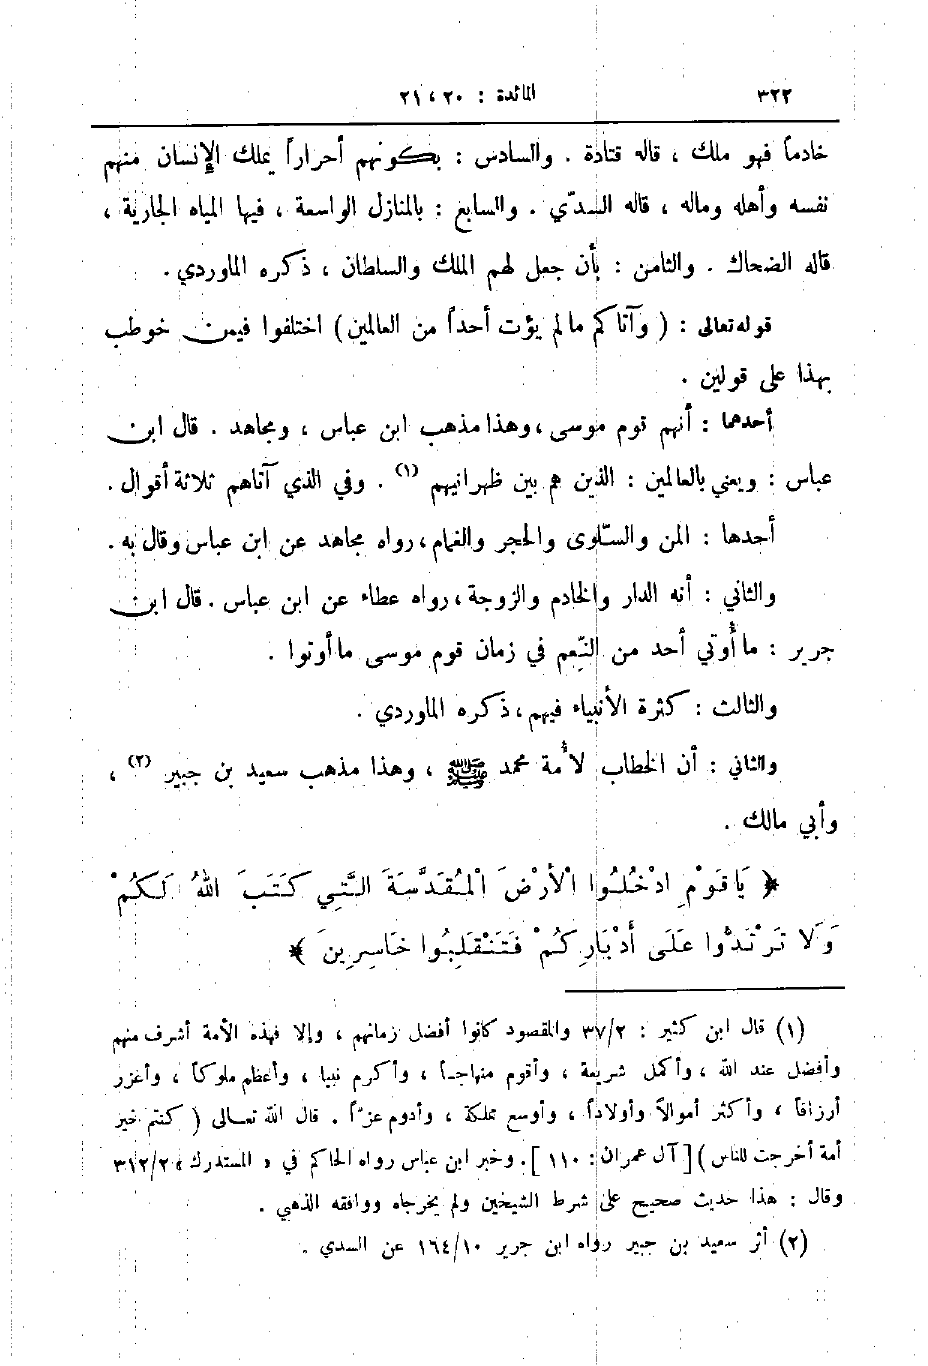 ٣٢٢
المائدة : ٢٠ ، ٢١
خادماً فهو ملك ، قاله قتادة . والسادس : بكونهم أحراراً يملك الإنسان منهم
نفسه وأهله وماله ، قاله السدّي . والسابع : بالمنازل الواسعة ، فيها المياه الجارية ،
قاله الضحاك . والثامن : بأن جعل لهم الملك والسلطان ، ذكره الماوردي .
قوله تعالى : ( وآتاكم ما لم يؤت أحداً من العالمين ) اختلفوا فيمن خوطب
بهذا على قولين .
أحدهما : أنهم قوم موسى ، وهذا مذهب ابن عباس ، ومجاهد . قال ابن
عباس : ويعني بالعالمين : الذين هم بين ظهرانيهم (١) . وفي الذي آتاهم ثلاثة أقوال .
أحدها : المن والسّلوى والحجر والغمام ، رواه مجاهد عن ابن عباس وقال به .
والثاني : أنه الدار والخادم والزوجة ، رواه عطاء عن ابن عباس . قال ابن
جرير : ما أُوتي أحد من النِّعم في زمان قوم موسى ما أوتوا .
والثالث : كثرة الأنبياء فيهم ، ذكره الماوردي .
والثاني : أن الخطاب لأُمة محمد ﷺ ، وهذا مذهب سعيد بن جبير (٢) ،
وأبي مالك .
﴿ يَا قَوْمِ ادْخُلُوا الْأَرْضَ الْمُقَدَّسَةَ الَّتِي كَتَبَ اللهُ لَكُمْ
وَلَا تَرْتَدُّوا عَلَى أَدْبَارِكُمْ فَتَنْقَلِبُوا خَاسِرِينَ ﴾
(١) قال ابن كثير : ٣٧/٢ والمقصود كانوا أفضل زمانهم ، وإلا فهذه الأمة أشرف منهم
وأفضل عند الله ، وأكمل شريعة ، وأقوم منهاجاً ، وأكرم نبيا ، وأعظم ملوكاً ، وأغزر
أرزاقاً ، وأكثر أموالاً وأولاداً ، وأوسع مملكة ، وأدوم عزّاً . قال الله تعالى ( كنتم خير
أمة أخرجت للناس ) [ آل عمران : ١١٠ ] . وخبر ابن عباس رواه الحاكم في « المستدرك » ٣١٢/٢
وقال : هذا حديث صحيح على شرط الشيخين ولم يخرجاه ووافقه الذهبي .
(٢) أثر سعيد بن جبير رواه ابن جرير ١٦٤/١٠ عن السدي .